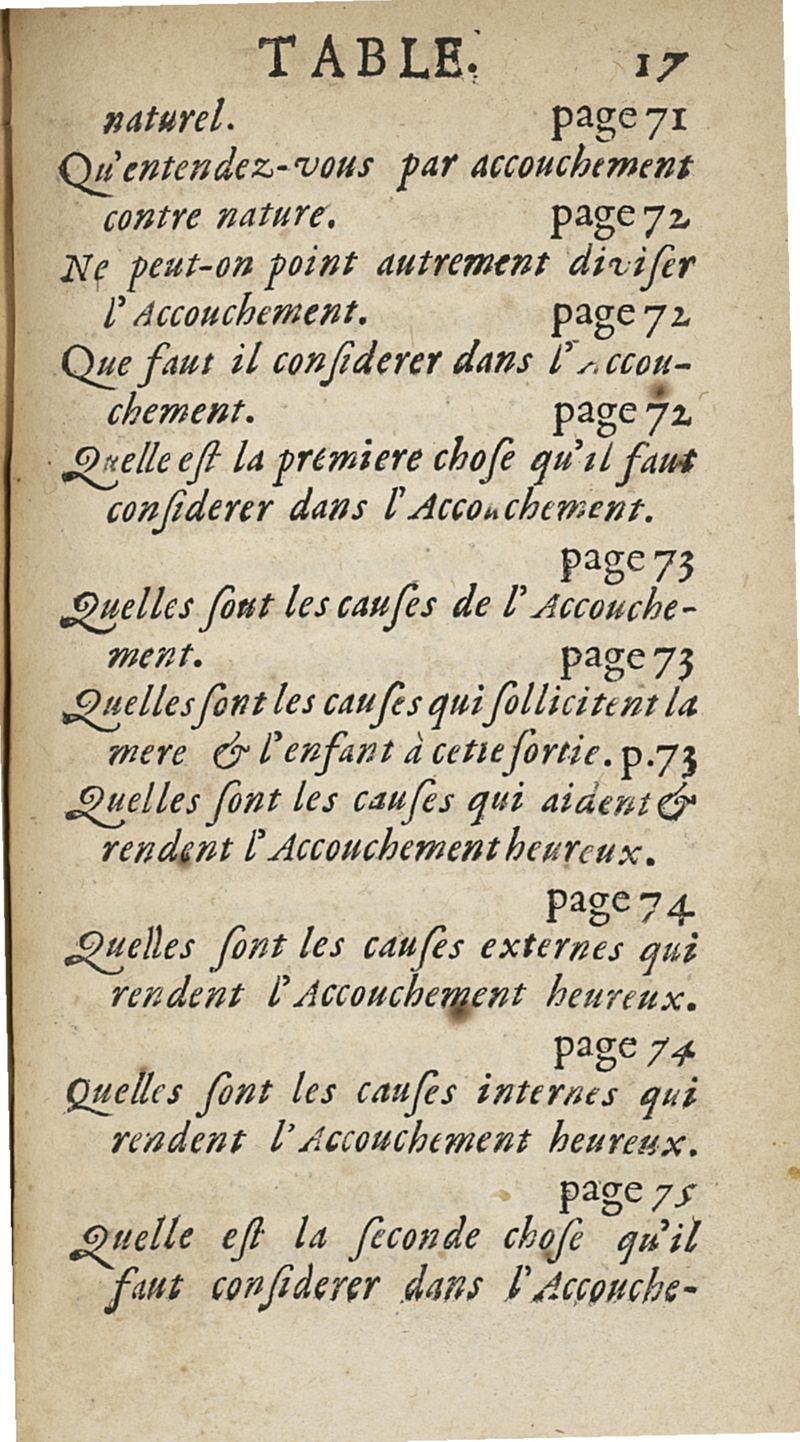 TABLE. 17
naturel. page 71
Qu'entendez-vous par accouchement
contre nature. page 72
Ne peut-on point autrement diviſer
l'Accouchement. page 72
Que faut il conſiderer dans l'Accou-
chement. page 72
Quelle eſt la premiere choſe qu'il faut
conſiderer dans l'Accouchement.
page 73
Quelles ſont les cauſes de l'Accouche-
ment. page 73
Quelles ſont les cauſes qui ſollicitent la
mere & l'enfant à cette ſortie. p.73
Quelles ſont les cauſes qui aident &
rendent l'Accouchement heureux.
page 74
Quelles ſont les cauſes externes qui
rendent l'Accouchement heureux.
page 74
Quelles ſont les cauſes internes qui
rendent l'Accouchement heureux.
page 75
Quelle eſt la ſeconde choſe qu'il
faut conſiderer dans l'Accouche-